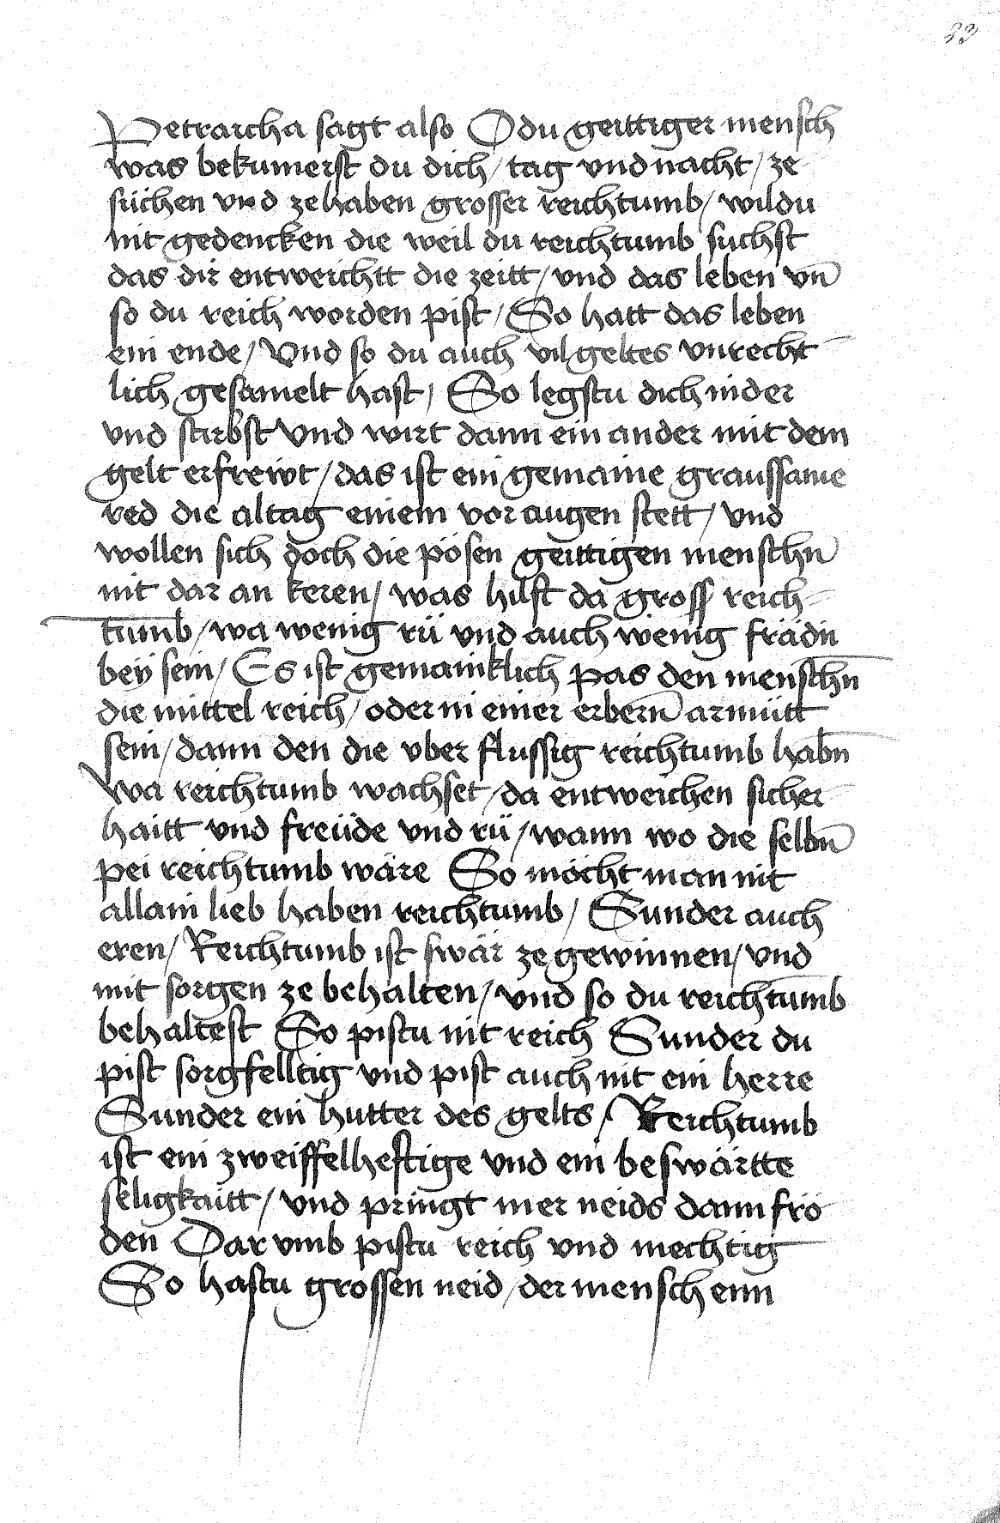 33
Petrarcha sagt also O du geittiger mensch
was bekumerst du dich / tag vnd nacht / ze
suͤchen vnd ze haben grosser reichtumb / wildu
nit gedencken die weil du reichtumb suchst
das dir entweichtt die zeitt / vnd das leben vn̄
so du reich worden pist / So hatt das leben
ein ende / Vnd so du auch vil geltes vnrecht
lich gesamelt hast / So legstu dich nider
vnd stirbst vnd wirt dann ein ander mit dem
gelt erfreẅt / das ist ein gemaine graussame
red die altag einem vor augen stett / vnd
wollen sich doch die pösen geittigen menschn̄
nit dar an keren / was hilft da gross reich
tumb / wa wenig rü vnd auch wenig frädn̄
beÿ sein / Es ist gemainklich pas den menschn̄
die mittel reich / oder in einer erbern̄ armütt
sein / dann den die vber flussig reichtumb habn̄
Wa reichtumb wachset / da entweichen sicher
haitt vnd freüde vnd rü / wann wo die selbn̄
pei reichtumb wäre So möcht man nit
allain lieb haben reichtumb / Sunder auch
eren / Reichtumb ist swär ze gewinnen / vnd
mit sorgen ze behalten / vnd so du reichtumb
behaltest So pistu nit reich Sunder du
pist sorgfelltig vnd pist auch nit ein herre
Sunder ein hutter des gelts / Reichtumb
ist ein zweiffelheftige vnd ein beswärtte
seligkaitt / vnd pringt mer neids dann frö
den Dar vmb pistu reich vnd mechtig
So hastu grossen neid / der menschenn